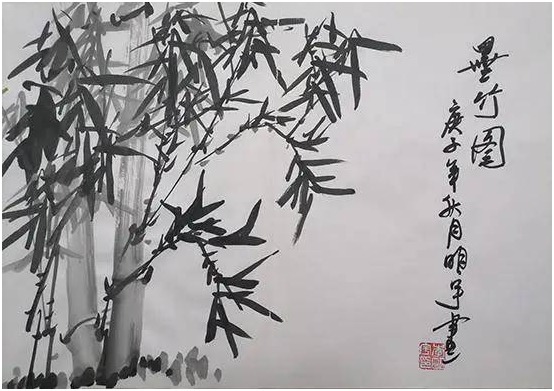 墨竹图
庚子年秋月明宇画